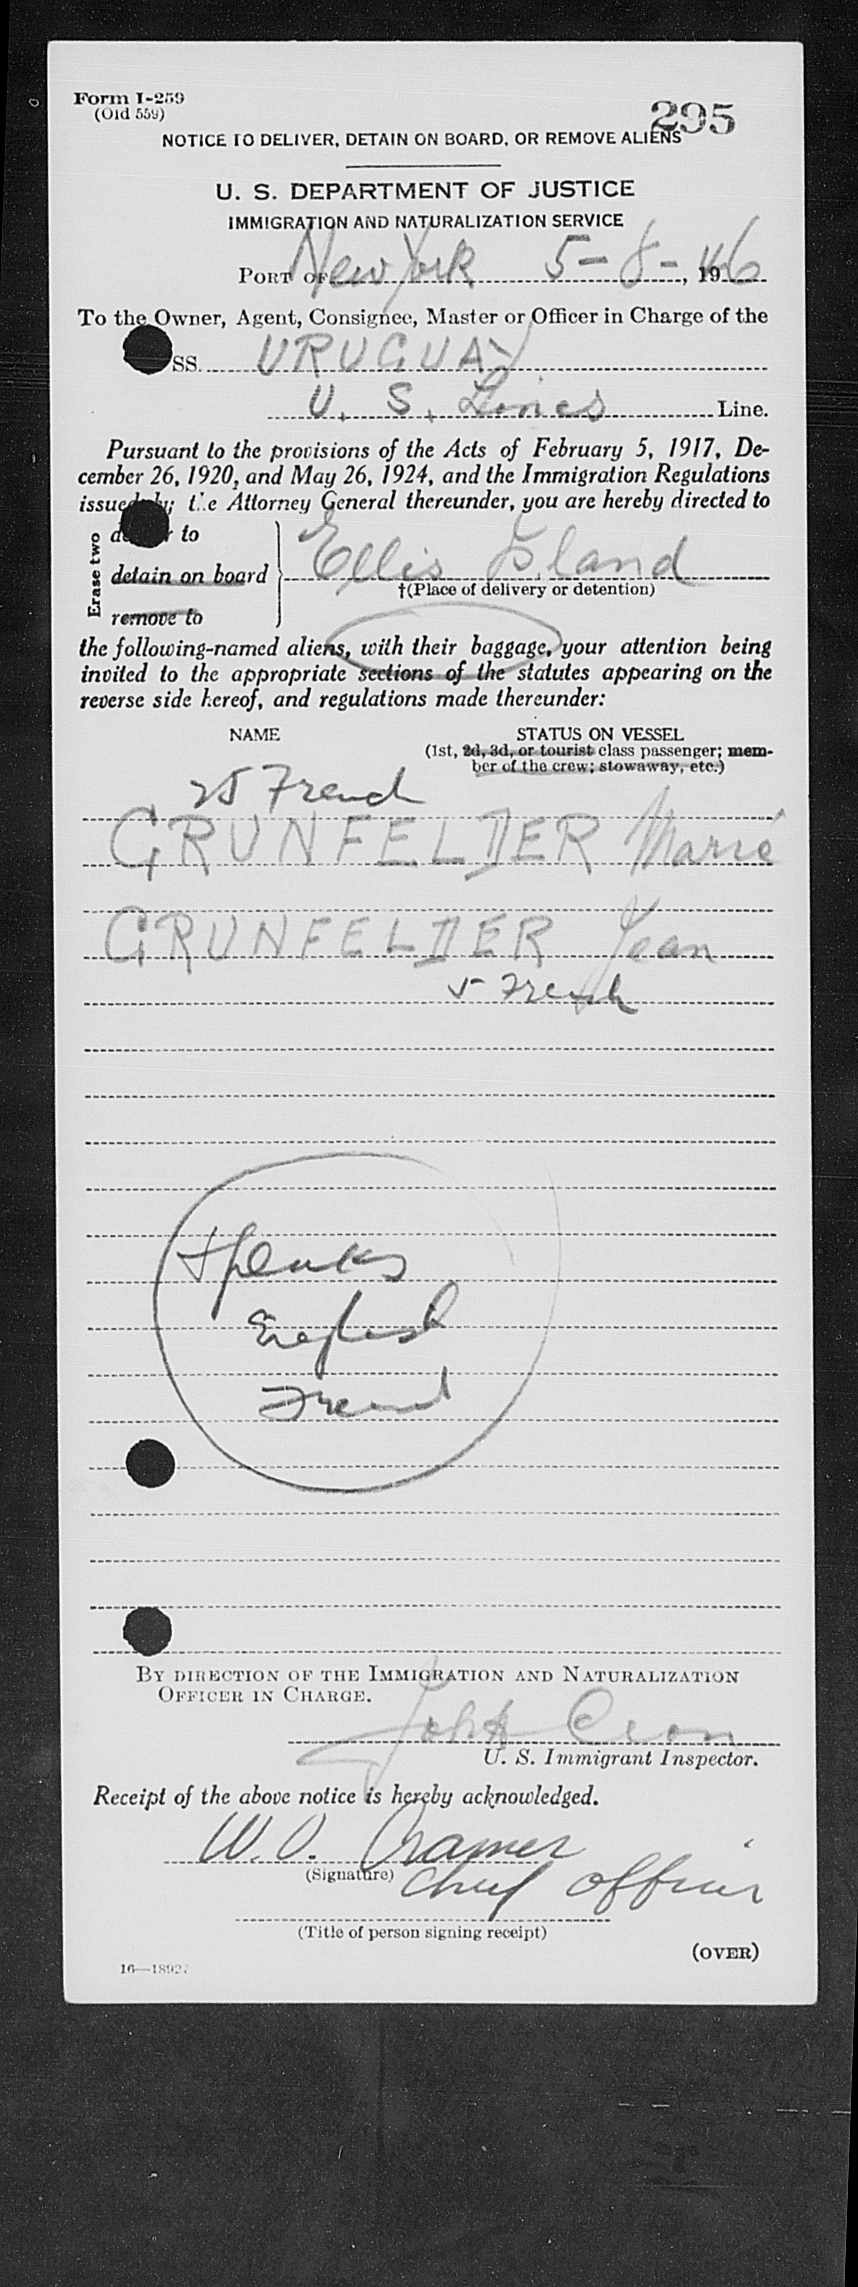 Form I-259
(Old 559)
295
NOTICE TO DELIVER, DETAIN ON BOARD, OR REMOVE ALIENS
U. S. DEPARTMENT OF JUSTICE
IMMIGRATION AND NATURALIZATION SERVICE
PORT OF New York 5-8-, 1946
To the Owner, Agent, Consignee, Master or Officer in Charge of the
SS. URUGUAY
U. S. Lines Line.
Pursuant to the provisions of the Acts of February 5, 1917, De-
cember 26, 1920, and May 26, 1924, and the Immigration Regulations
issued by the Attorney General thereunder, you are hereby directed to
Erase two
to
detain on board
remove to
Ellis Island
†(Place of delivery or detention)
the following-named aliens, with their baggage, your attention being
invited to the appropriate sections of the statutes appearing on the
reverse side hereof, and regulations made thereunder:
NAME STATUS ON VESSEL
(1st, 2d, 3d, or tourist class passenger; mem-
ber of the crew; stowaway, etc.)
25 French
GRUNFELDER Marie
GRUNFELDER Jean
5 French
Speaks
English
French
BY DIRECTION OF THE IMMIGRATION AND NATURALIZATION
OFFICER IN CHARGE.
John
U. S. Immigrant Inspector.
Receipt of the above notice is hereby acknowledged.
W. O. Cramer
(Signature) Chief Officer
(Title of person signing receipt)
(OVER)
16—18927